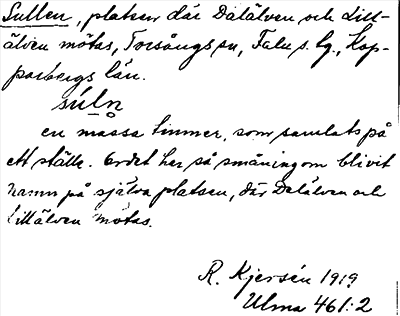 Sullen, platsen där Dalälven och Lill-
älven mötas, Torsångs sn, Falu s. lg., Kop-
parbergs län.
súln̥
en massa timmer, som samlats på
ett ställe. Ordet har så småningom blivit
namn på själva platsen, där Dalälven och
Lillälven mötas.
R. Kjersén 1919
Ulma 461:2